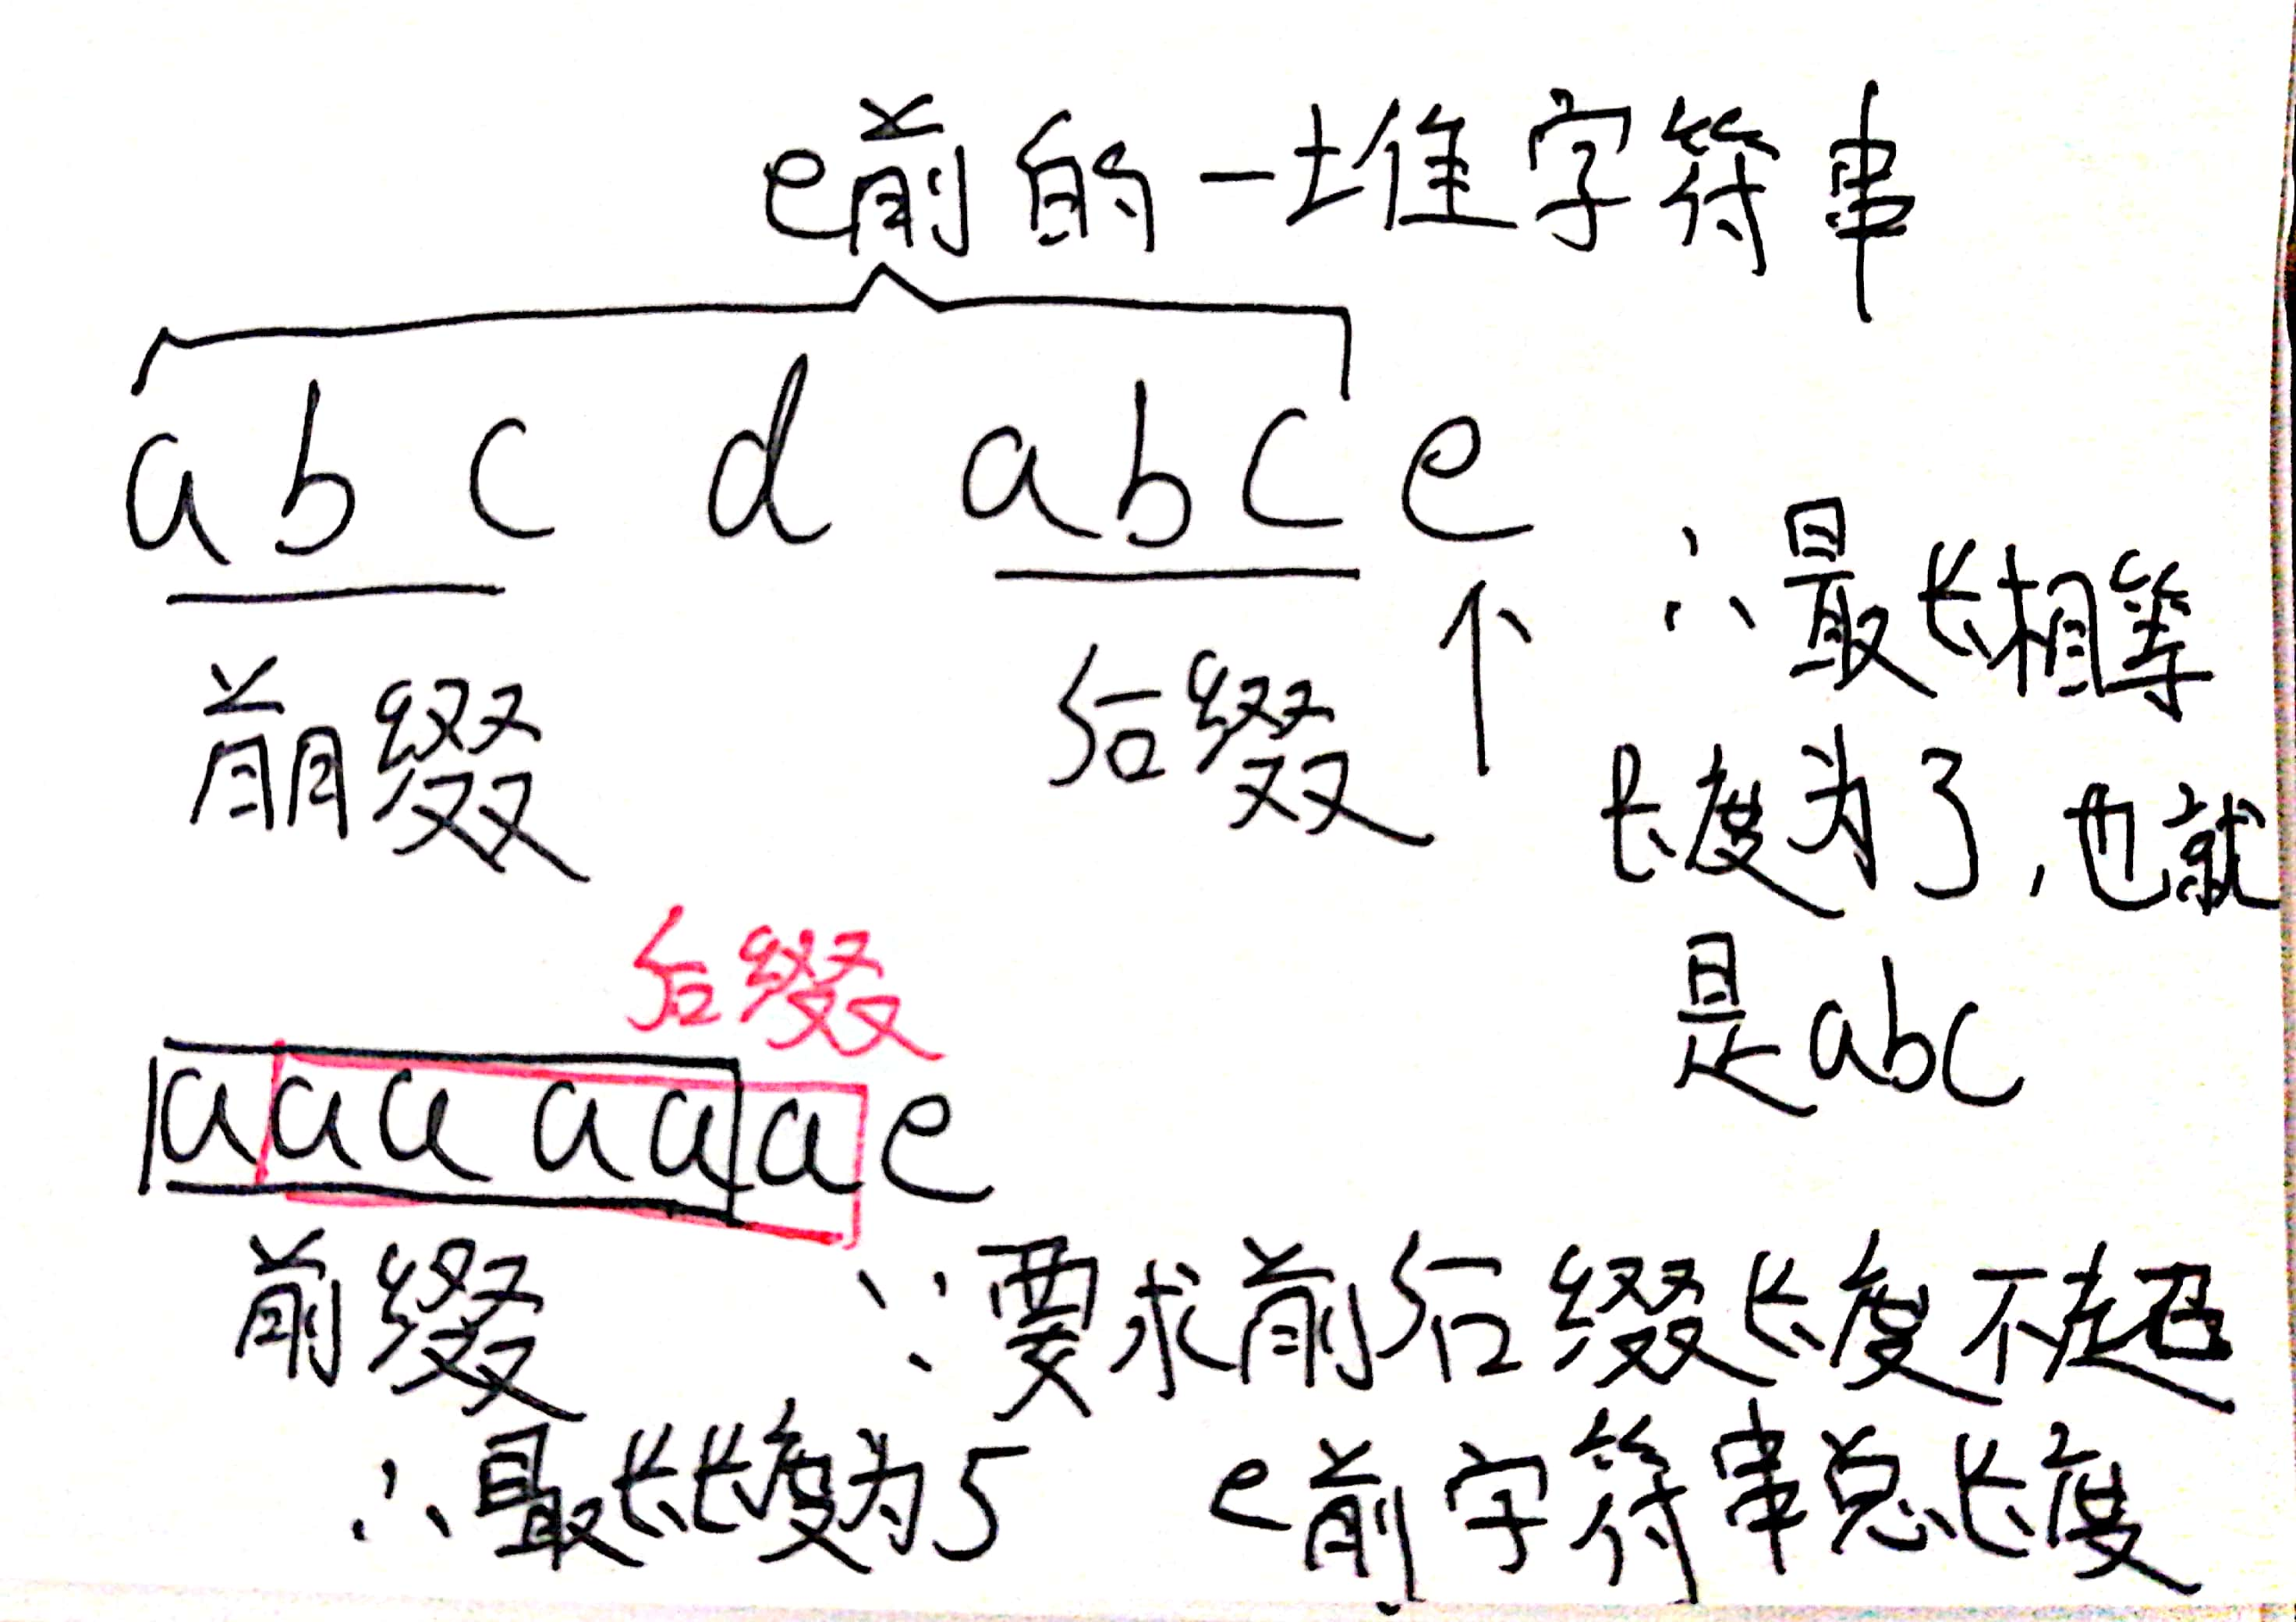 e前的一堆字符串
a b c d a b c e
前缀 后缀
∴最长相等
长度为3,也就
是abc
后缀
a a a a a a e
前缀
∵要求前后缀长度不超
e前字符串总长度
∴最长长度为5